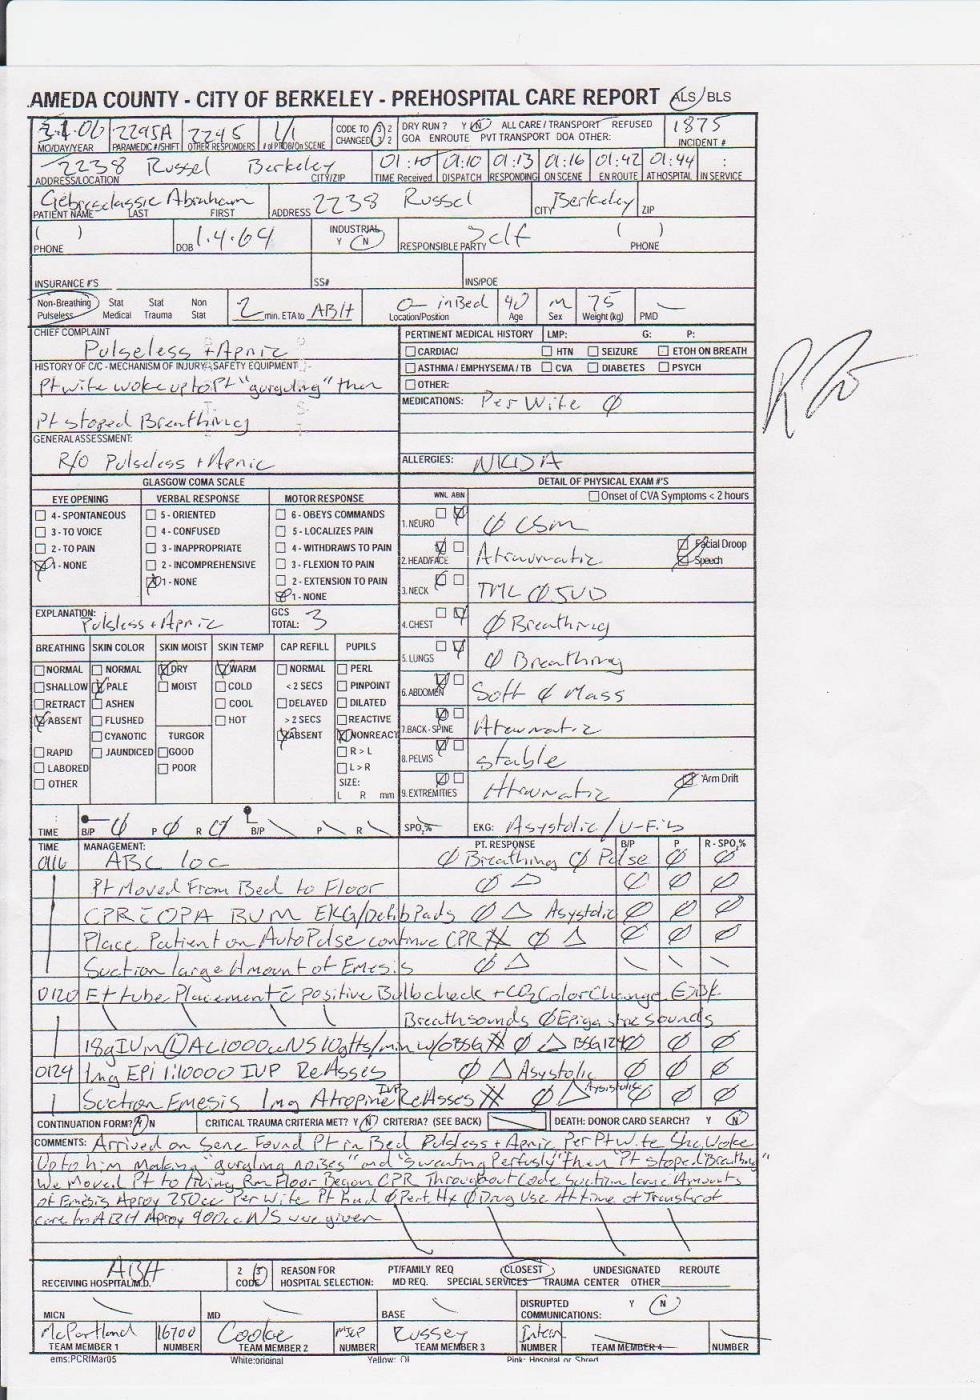 AMEDA COUNTY - CITY OF BERKELEY - PREHOSPITAL CARE REPORT ALS / BLS
06 2295A 2245 1/1 CODE TO 3 2 DRY RUN ? Y N ALL CARE / TRANSPORT REFUSED 1875
MO/DAY/YEAR PARAMEDIC #/SHIFT OTHER RESPONDERS CHANGED 3 2 GOA ENROUTE PVT TRANSPORT DOA OTHER: INCIDENT #
2238 Russel Berkeley 01:10 01:10 01:13 01:16 01:42 01:44 :
ADDRESS/LOCATION CITY/ZIP TIME Received DISPATCH RESPONDING ON SCENE EN ROUTE AT HOSPITAL IN SERVICE
Gebreselassie Abraham ADDRESS 2238 Russel CITY Berkeley ZIP
PATIENT NAME LAST FIRST
( ) 1.4.64 INDUSTRIAL Self ( )
PHONE DOB Y N RESPONSIBLE PARTY PHONE
INSURANCE #'S SS# INS/POE
Non-Breathing Stat Stat Non 2 min. ETA to ABH in Bed 42 m 75
Pulseless Medical Trauma Stat Location/Position Age Sex Weight (kg) PMD
CHIEF COMPLAINT PERTINENT MEDICAL HISTORY LMP: G: P:
Pulseless + Apnic CARDIAC/ HTN SEIZURE ETOH ON BREATH
HISTORY OF C/C - MECHANISM OF INJURY, SAFETY EQUIPMENT ASTHMA / EMPHYSEMA / TB CVA DIABETES PSYCH
Pt wife woke up to Pt "gurguling" then OTHER:
Pt stoped Breathing MEDICATIONS: Per Wife Ø
GENERAL ASSESSMENT:
R/O Pulseless + Apnic ALLERGIES: NKDA
GLASGOW COMA SCALE DETAIL OF PHYSICAL EXAM #'S
EYE OPENING VERBAL RESPONSE MOTOR RESPONSE WNL ABN Onset of CVA Symptoms < 2 hours
4 - SPONTANEOUS 5 - ORIENTED 6 - OBEYS COMMANDS 1. NEURO Ø CSM
3 - TO VOICE 4 - CONFUSED 5 - LOCALIZES PAIN
2 - TO PAIN 3 - INAPPROPRIATE 4 - WITHDRAWS TO PAIN 2. HEAD/FACE Atraumatic Facial Droop
1 - NONE 2 - INCOMPREHENSIVE 3 - FLEXION TO PAIN Speech
1 - NONE 2 - EXTENSION TO PAIN 3. NECK TML Ø JVD
1 - NONE
EXPLANATION: Pulsless + Apnic GCS TOTAL: 3 4. CHEST Ø Breathing
BREATHING SKIN COLOR SKIN MOIST SKIN TEMP CAP REFILL PUPILS 5. LUNGS Ø Breathing
NORMAL NORMAL DRY WARM NORMAL PERL
SHALLOW PALE MOIST COLD < 2 SECS PINPOINT 6. ABDOMEN Soft Ø Mass
RETRACT ASHEN COOL DELAYED DILATED
ABSENT FLUSHED HOT > 2 SECS REACTIVE 7. BACK - SPINE Atrumatic
CYANOTIC TURGOR ABSENT NONREACT
RAPID JAUNDICED GOOD R > L 8. PELVIS stable
LABORED POOR L > R
OTHER SIZE: 9. EXTREMITIES Atrumatic Arm Drift
L R mm
TIME B/P Ø P Ø R Ø B/P P R SPO2% EKG: Asystolic / V-Fib
TIME MANAGEMENT: PT. RESPONSE B/P P R - SPO2%
0116 ABC loc Ø Breathing Ø Pulse Ø Ø
Pt Moved From Bed to Floor Ø △ Ø Ø Ø
CPR c̄ OPA BVM EKG/Defib Pads Ø △ Asystolic Ø Ø Ø
Place Patient on AutoPulse continue CPR Ø △ Ø Ø Ø
Suction large Amount of Emesis Ø △
0120 Et tube Placement c̄ positive Bulb check + CO2 Color Change
Breath sounds Ø Epigastric sounds
18g IV in (L) AC 1000cc NS 10gtts/min w/o BSG Ø △ BSG 124 Ø Ø Ø
0124 1mg EPI 1:10000 IVP ReAsses Ø △ Asystolic Ø Ø Ø
Suction Emesis 1mg Atropine IVP ReAsses Ø △ Asystolic Ø Ø Ø
CONTINUATION FORM? Y N CRITICAL TRAUMA CRITERIA MET? Y N CRITERIA? (SEE BACK) DEATH: DONOR CARD SEARCH? Y N
COMMENTS: Arrived on Sene Found Pt in Bed Pulsless + Apnic Per Pt Wife She Woke
Up to him making "gurgling noises" and "sweating Perfusly" then "Pt stoped Breathing"
We Moved Pt to living Rm Floor Began CPR Throughout Code Suction large Amounts
of Emesis Aprox 250cc Per Wife Pt had Ø Pert. Hx Ø Drug Use At time of Transfer of
care to ABH Aprox 900cc NS was given
ABH 2 3 REASON FOR PT/FAMILY REQ CLOSEST UNDESIGNATED REROUTE
RECEIVING HOSPITAL/M.D. CODE HOSPITAL SELECTION: MD REQ. SPECIAL SERVICES TRAUMA CENTER OTHER
MICN MD BASE DISRUPTED COMMUNICATIONS: Y N
McPartland 16700 Cooke Russey Intern
TEAM MEMBER 1 NUMBER TEAM MEMBER 2 NUMBER TEAM MEMBER 3 NUMBER TEAM MEMBER 4 NUMBER
ems:PCRIMar05 White:original Yellow: Pink: Hospital or Shred